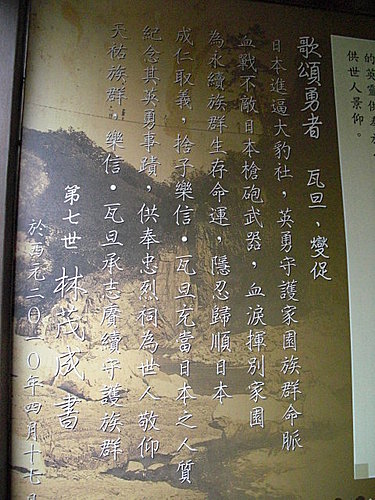 的英靈供奉於
供世人景仰。
歌頌勇者　瓦旦，燮促
日本進逼大豹社，英勇守護家園族群命脈
血戰不敵日本槍砲武器，血淚揮別家園
為永續族群生存命運，隱忍歸順日本
成仁取義，捨子樂信•瓦旦充當日本之人質
紀念其英勇事蹟，供奉忠烈祠為世人敬仰
天祐族群，樂信•瓦旦承志賡續守護族群
第七世 林茂成書
於西元二〇一〇年四月十七